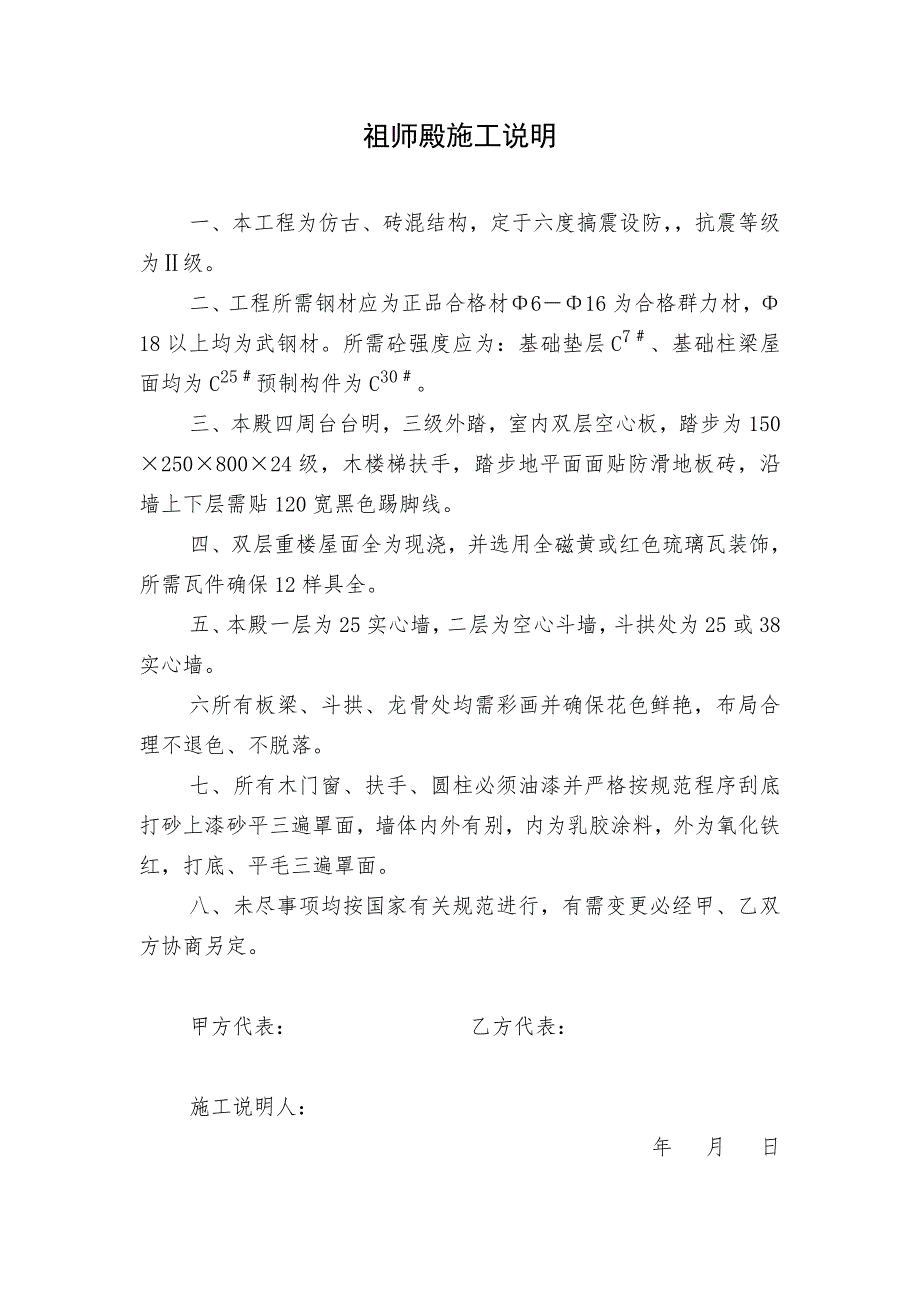 祖师殿施工说明
一、本工程为仿古、砖混结构，定于六度搞震设防，，抗震等级
为Ⅱ级。
二、工程所需钢材应为正品合格材Φ6－Φ16为合格群力材，Φ
18以上均为武钢材。所需砼强度应为：基础垫层C7＃、基础柱梁屋
面均为C25＃预制构件为C30＃。
三、本殿四周台台明，三级外踏，室内双层空心板，踏步为150
×250×800×24级，木楼梯扶手，踏步地平面面贴防滑地板砖，沿
墙上下层需贴120宽黑色踢脚线。
四、双层重楼屋面全为现浇，并选用全磁黄或红色琉璃瓦装饰，
所需瓦件确保12样具全。
五、本殿一层为25实心墙，二层为空心斗墙，斗拱处为25或38
实心墙。
六所有板梁、斗拱、龙骨处均需彩画并确保花色鲜艳，布局合
理不退色、不脱落。
七、所有木门窗、扶手、圆柱必须油漆并严格按规范程序刮底
打砂上漆砂平三遍罩面，墙体内外有别，内为乳胶涂料，外为氧化铁
红，打底、平毛三遍罩面。
八、未尽事项均按国家有关规范进行，有需变更必经甲、乙双
方协商另定。
甲方代表： 乙方代表：
施工说明人：
年 月 日